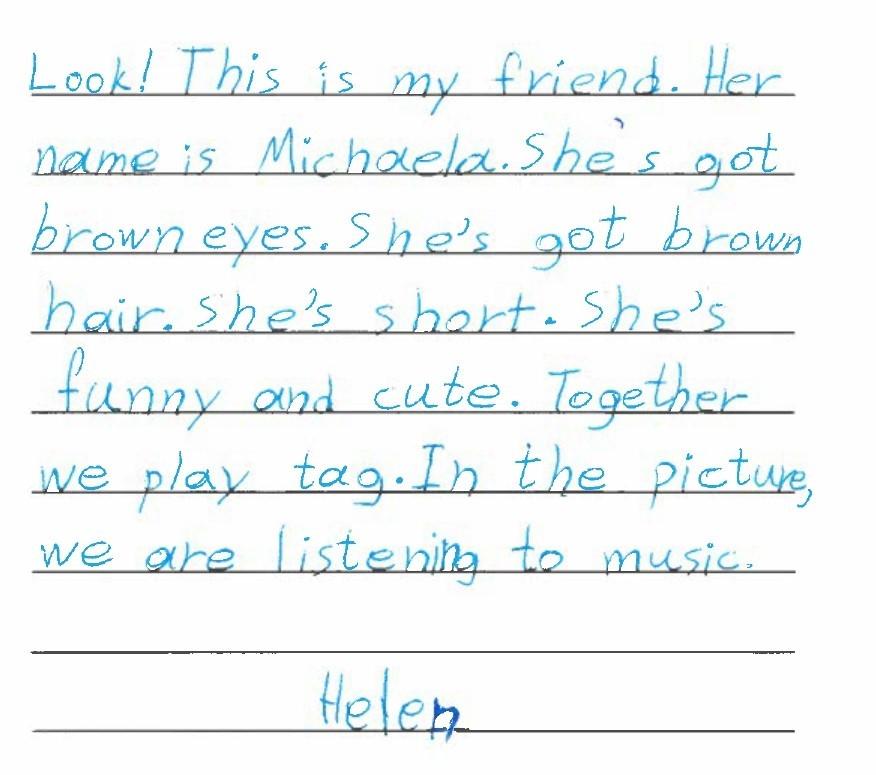 Look! This is my friend. Her
name is Michaela. She's got
brown eyes. She's got brown
hair. She's short. She's
funny and cute. Together
we play tag. In the picture,
we are listening to music.
Helen